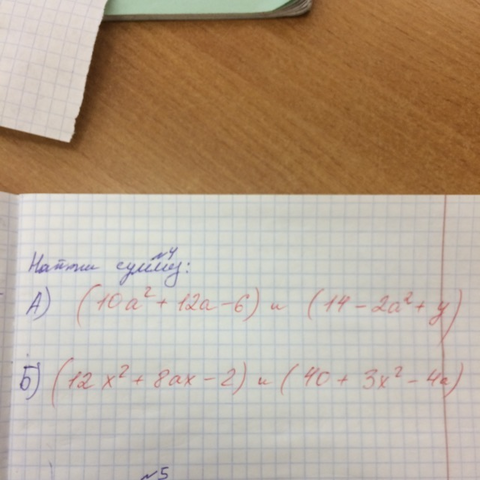 №4
Найти сумму:
А) (10a² + 12a - 6) и (14 - 2a² + y)
Б) (12x² + 8ax - 2) и (40 + 3x² - 4a)
№5